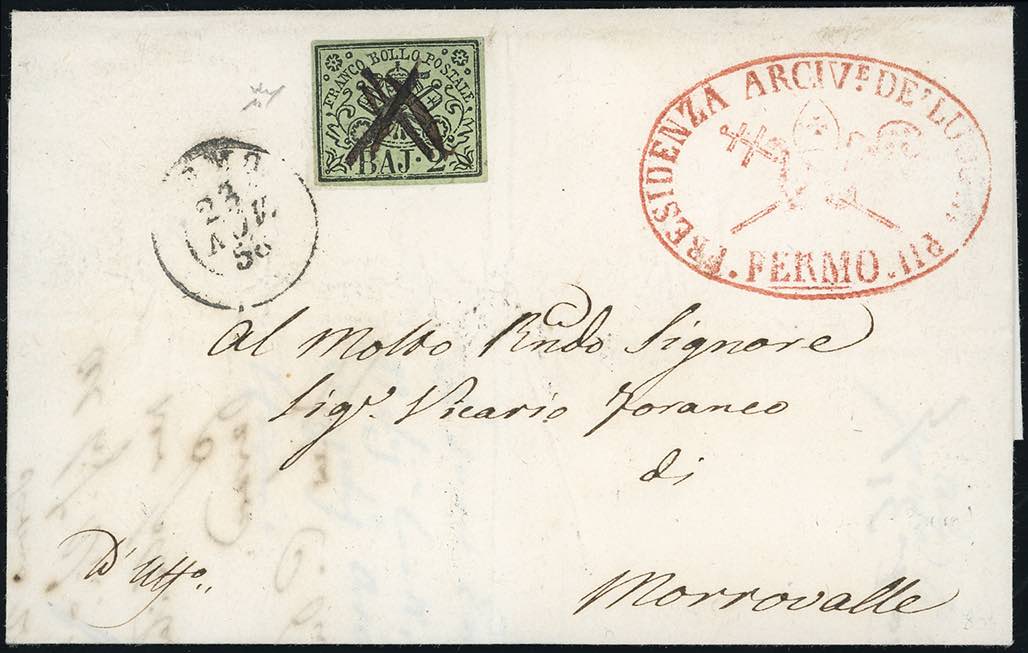 FRANCO BOLLO POSTALE
BAJ. 2
23
NOV.
56
PRESIDENZA ARCIV.E DE' LUOGHI PII
. FERMO .
Al Molto Rndo Signore
Sigr. Vicario Foraneo
di
Morrovalle
D'Uffo..